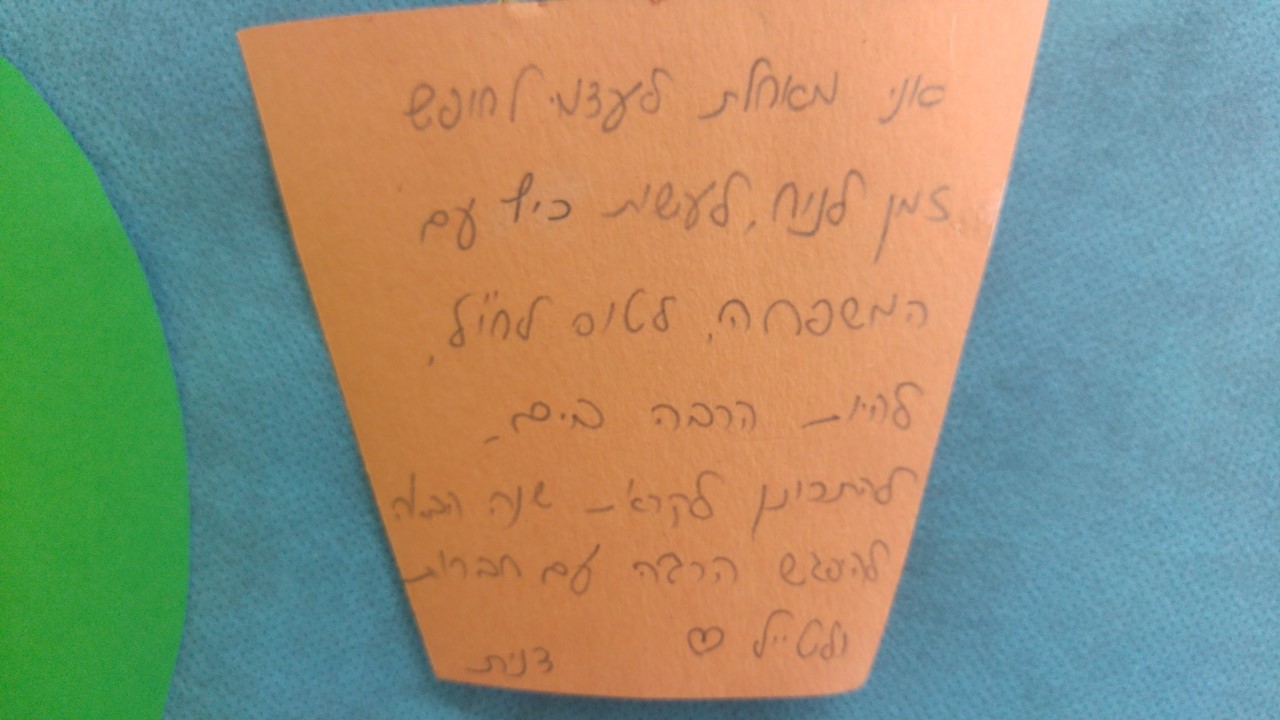 אני מאחלת לעצמי לחופש
זמן לניח, לעשות כיף עם
המשפחה, לטוס לחו"ל,
להיות הרבה בים,
להתכונן לקראת שנה הבאה
להפגש הרבה עם חברות
ולטייל ♡
דנית